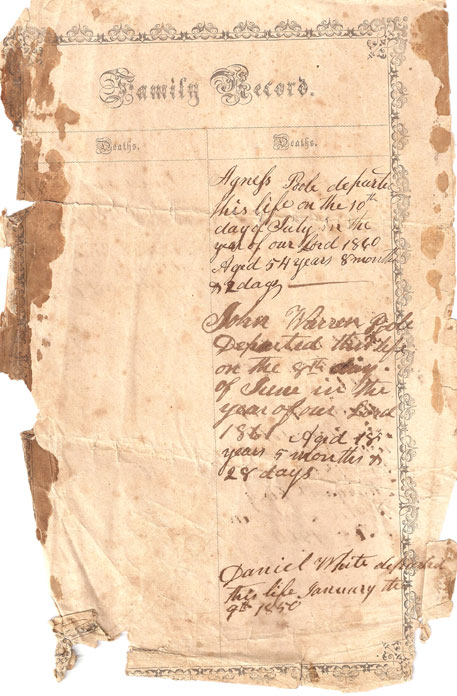 Family Record.
Deaths. Deaths.
Agness Poole departe
this life on the 10th
day of July in the
year of our Lord 1860
Aged 54 years 8 month
& 2 days
John Warren Poole
Departed this life
on the 8th day
of June in the
year of our Lord
1861 Aged 18
years 5 months &
28 days
Daniel White departed
this life January the
9th 1850